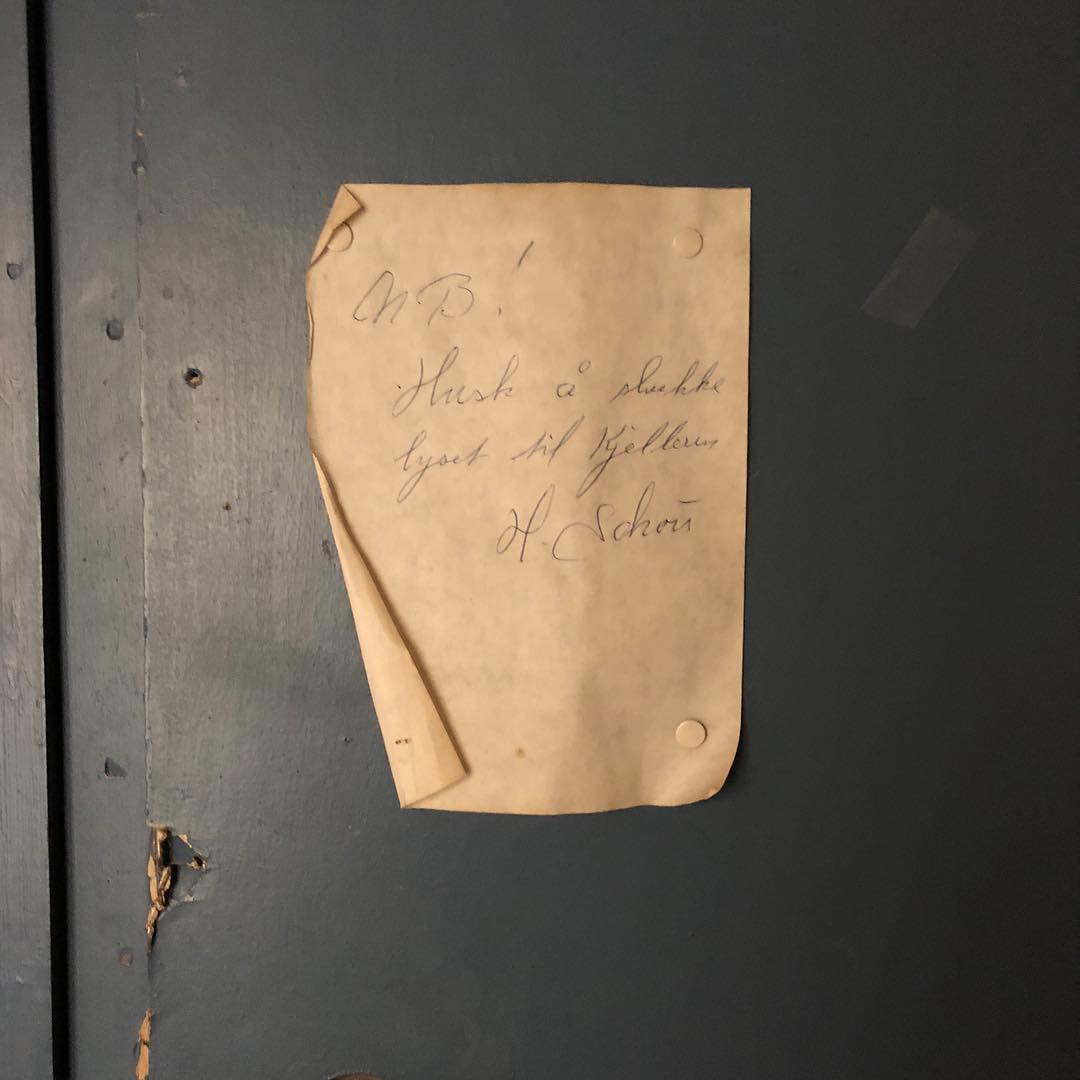 NB!
Husk å slukke
lyset til Kjelleren
H. Schou